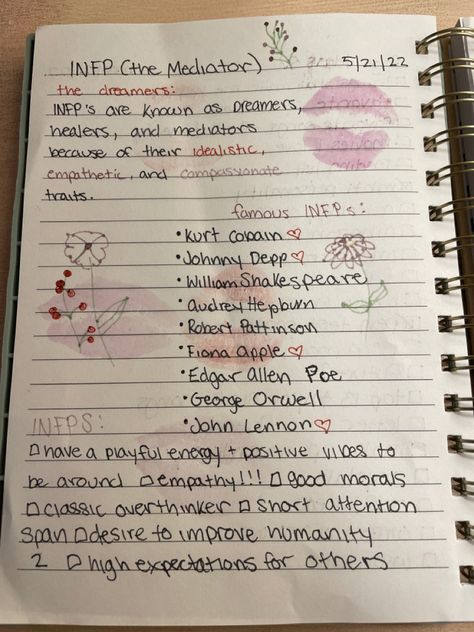 INFP (the Mediator) 5/21/22
the dreamers:
INFP's are known as Dreamers,
healers, and mediators
because of their idealistic,
empathetic, and compassionate
traits.
famous INFPs:
• Kurt Cobain ♡
• Johnny Depp ♡
• William Shakespeare
• Audrey Hepburn
• Robert Pattinson
• Fiona Apple ♡
• Edgar Allen Poe
• George Orwell
• John Lennon ♡
INFPS:
□ have a playful energy + positive vibes to
be around □ empathy!!! □ good morals
□ classic overthinker □ short attention
span □ desire to improve humanity
2 □ high expectations for others